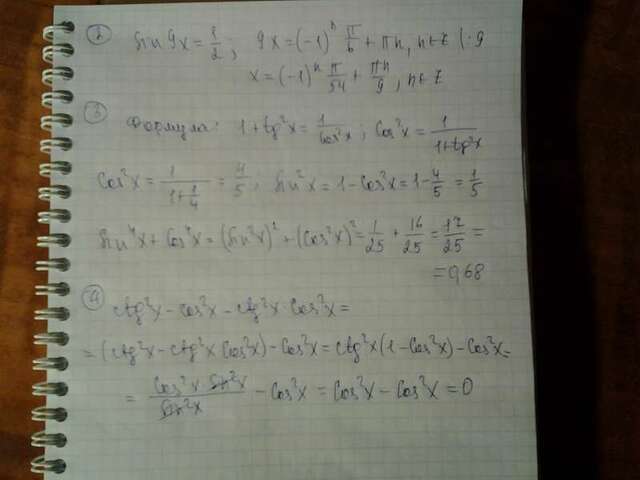 2) sin 9x = 1/2; 9x = (-1)^n π/6 + πn, n∈Z |:9
x = (-1)^n π/54 + πn/9, n∈Z
3) Формула: 1 + tg²x = 1/cos²x; cos²x = 1/(1+tg²x)
cos²x = 1/(1+1/4) = 4/5; sin²x = 1 - cos²x = 1 - 4/5 = 1/5
sin⁴x + cos⁴x = (sin²x)² + (cos²x)² = 1/25 + 16/25 = 17/25 =
= 0,68
4) ctg²x - cos²x - ctg²x cos²x =
= (ctg²x - ctg²x cos²x) - cos²x = ctg²x(1 - cos²x) - cos²x =
= cos²x sin²x/sin²x - cos²x = cos²x - cos²x = 0